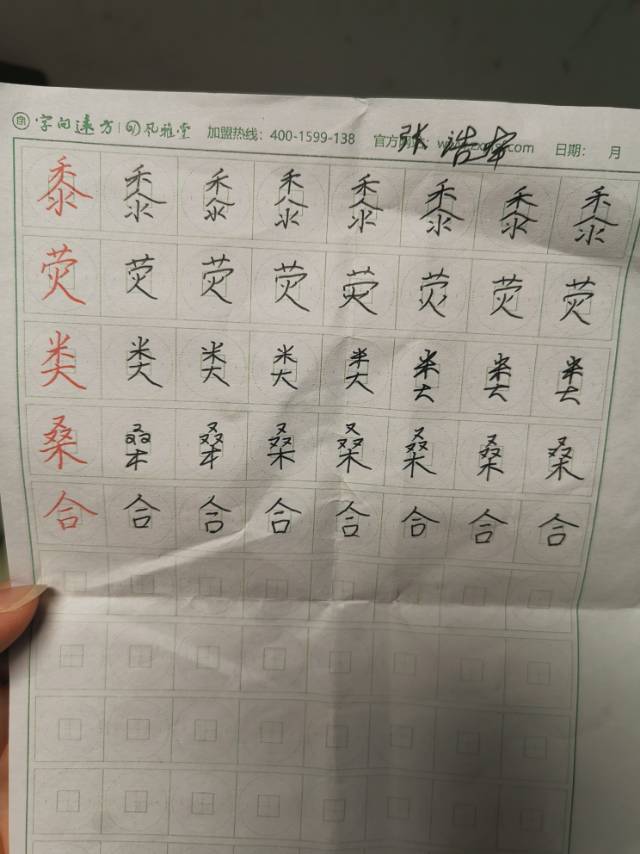 字向远方 风雅堂 加盟热线：400-1599-138 官方 .com 日期： 月
张浩宇
黍 黍 黍 黍 黍 黍 黍 黍
荧 荧 荧 荧 荧 荧 荧 荧
类 类 类 类 类 类 类 类
桑 桑 桑 桑 桑 桑 桑 桑
合 合 合 合 合 合 合 合